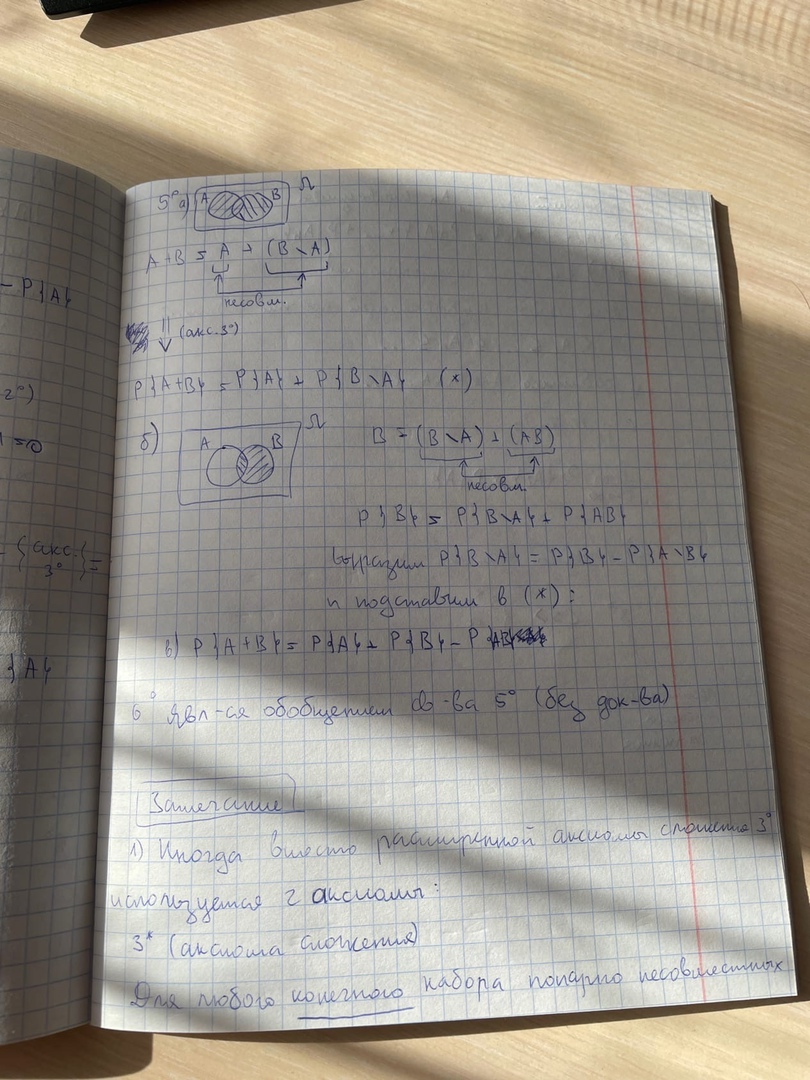 - P{A}
2°)
) = 0
- {акс. 3°} =
{A}
5° а) A B Ω
A+B = A + (B \ A)
несовм.
⇓ (акс. 3°)
P{A+B} = P{A} + P{B \ A} (*)
б) A B Ω
B = (B \ A) + (AB)
несовм.
P{B} = P{B \ A} + P{AB}
выразим P{B \ A} = P{B} - P{A \ B}
и подставим в (*):
в) P{A+B} = P{A} + P{B} - P{AB}
6° явл-ся обобщением св-ва 5° (без док-ва)
Замечание
1) Иногда вместо расширенной аксиомы сложения 3°
используется 2 аксиомы:
3* (аксиома сложения)
Для любого конечного набора попарно несовместных